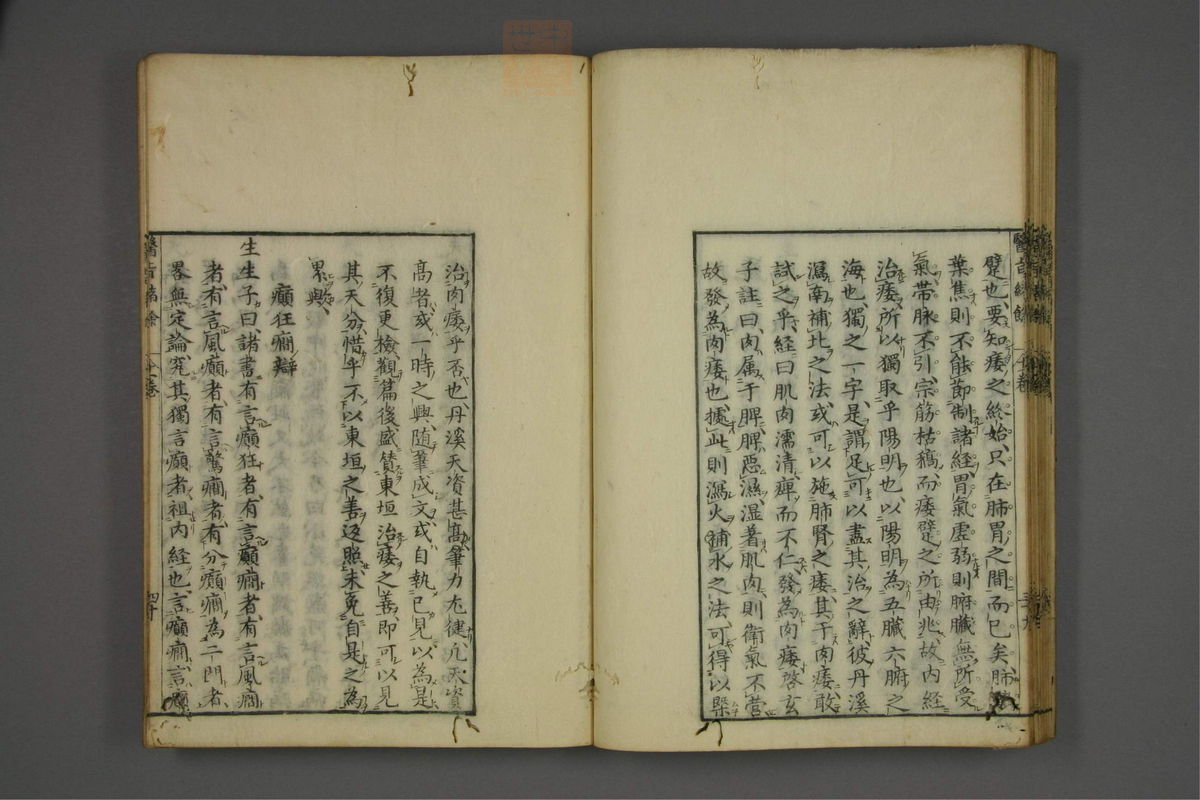 躄也要知痿之終始只在肺胃之間而已矣肺
葉焦則不能節制諸經胃氣虛弱則腑臟無所受
氣帶脉不引宗筋枯槁而痿躄之所由兆故内経
治痿所以獨取乎陽明也以陽明為五臟六腑之
海也獨之一字是謂足可以盡其治之辭彼丹溪
瀉南補北之法或可以施肺腎之痿其于肉痿敢
試之乎経曰肌肉濡清痺而不仁發為肉痿啓玄
子註曰肉属于脾脾惡濕湿著肌肉則衛氣不營
故發為肉痿也據此則瀉火補水之法可得以槩
治肉痿乎否也丹溪天資甚髙筆力尤健凡天資
髙者或一時之興随筆成文或自執已見以為是
不復更檢觀篇後盛賛東垣治痿之善即可以見
其天分惜乎不以東垣之善返照未免自是之為
累歟
癲狂癇辯
生生子曰諸書有言癲狂者有言癲癇者有言風癇
者有言風癲者有言驚癇者有分癲癇為二門者
畧無定論究其獨言癲者祖内経也言癲癇言癲
醫旨緒餘
十一巻
四十